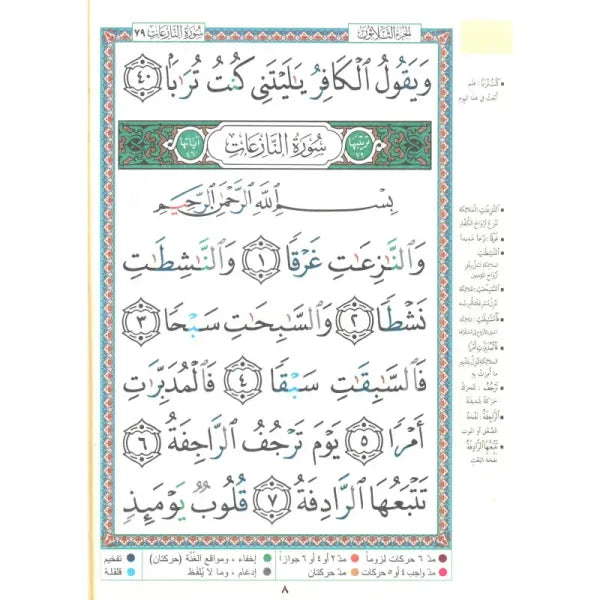 الجزء الثلاثون
سورة النازعات ٧٩
وَيَقُولُ ٱلۡكَافِرُ يَٰلَيۡتَنِي كُنتُ تُرَٰبَۢا ٤٠
ترتيبها ٧٩
سُورَةُ النَّازِعَاتِ
آياتها ٤٦
بِسۡمِ ٱللَّهِ ٱلرَّحۡمَٰنِ ٱلرَّحِيمِ
وَٱلنَّٰزِعَٰتِ غَرۡقٗا ١ وَٱلنَّٰشِطَٰتِ
نَشۡطٗا ٢ وَٱلسَّٰبِحَٰتِ سَبۡحٗا ٣
فَٱلسَّٰبِقَٰتِ سَبۡقٗا ٤ فَٱلۡمُدَبِّرَٰتِ
أَمۡرٗا ٥ يَوۡمَ تَرۡجُفُ ٱلرَّاجِفَةُ ٦
تَتۡبَعُهَا ٱلرَّادِفَةُ ٧ قُلُوبٞ يَوۡمَئِذٖ
مدّ ٦ حركات لزوماً
مدّ ٢ أو ٤ أو ٦ جوازاً
إخفاء، ومواقع الغُنَّة (حركتان)
تفخيم
مدّ واجب ٤ أو ٥ حركات
مدّ حركتان
إدغام، وما لا يُلفَظ
قلقلة
٨